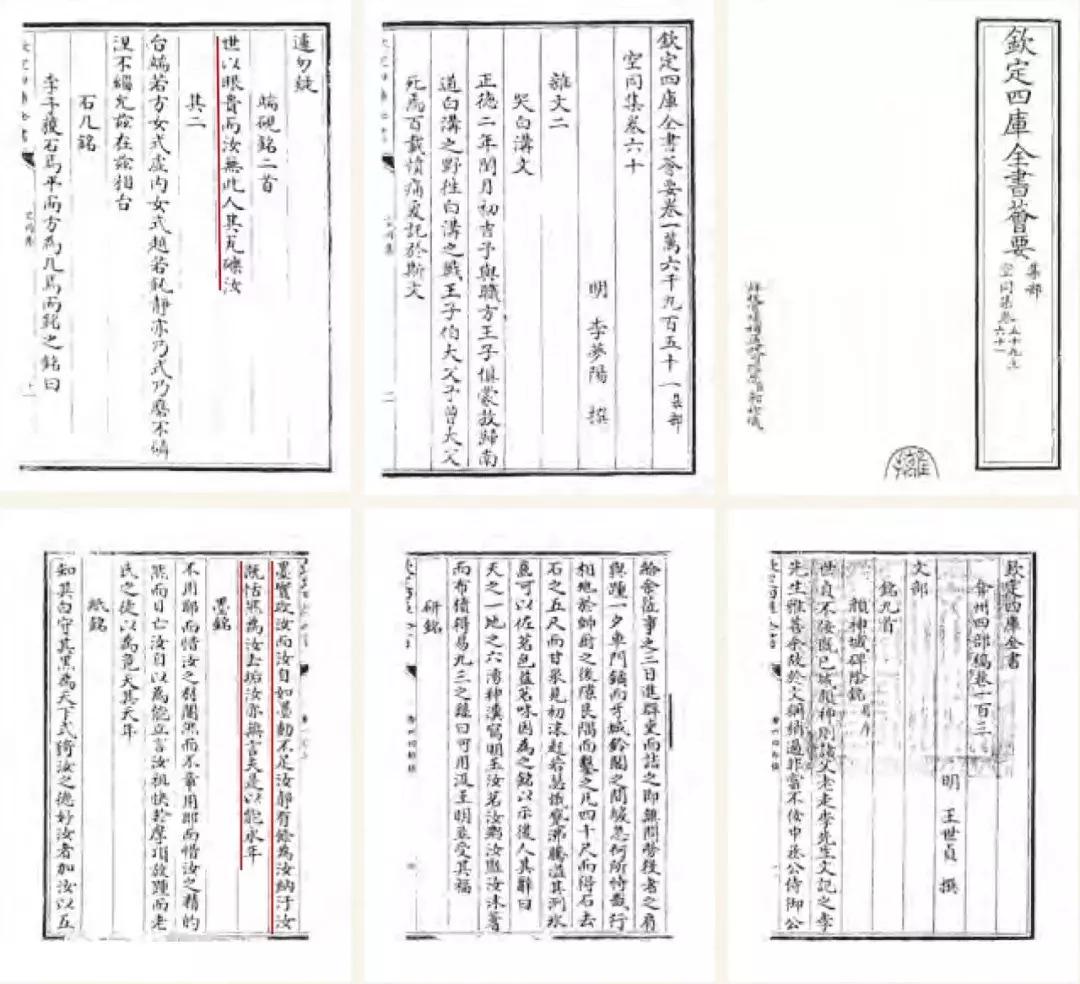 欽定四庫全書薈要
集部
空同集卷五十九之六十一
欽定四庫全書薈要卷一萬六千九百五十一集部
空同集卷六十
明 李夢陽 撰
雜文二
哭白溝文
正德二年閏月初吉予與職方王子俱蒙放歸南
道白溝之野徃白溝之戰王子伯大父予曾大父
死焉百載憤痛爰託於斯文
遠勿諼
端硯銘二首
世以眼貴而汝無此人其瓦礫汝
其二
台端若方女式虛内女式越若鈍靜亦乃式乃磨不磷
涅不緇允茲在茲相台
石几銘
李子獲石焉平而方為几焉而銘之銘曰
欽定四庫全書
弇州四部稿卷一百三
明 王世貞 撰
文部
銘九首
顔神城碑陰銘
世貞不佞既已城顔神則諸父老走李先生文記之李
先生雅善余故於文稱稍過非當不佞中丞公侍御公
給余蒞事之三日進羣吏而詰之即無問勞後者之有
與踵一夕車門鑄而牙城鈴閣之間墟忽何所恃哉行
相地於帥府之後隙艮隅而鑿之凡四十尺而得石去
石之五尺而甘泉見初沫趵若瑟攕甕沸騰溢其冽
可以佐茗色益茗味因為之銘以示後人其辭曰
天之一地之六清神瀵寫明玉汝茗汝粥汝盥汝沐蓍
而布積得易九三之繇曰可用汲王明並受其福
研銘
墨實攻汝而汝自如墨動不足汝靜有餘為汝納汙汝
既恬然為汝去垢汝亦無言夫是以能永年
墨銘
不用耶而惜汝之材闇然而不章用耶而惜汝之精的
然而日亡汝自以為能立言汝祖快於摩頂放踵而老
氏之徒以為竟夭其天年
紙銘
知其白守其黑為天下式猗汝之德好汝者加汝以五